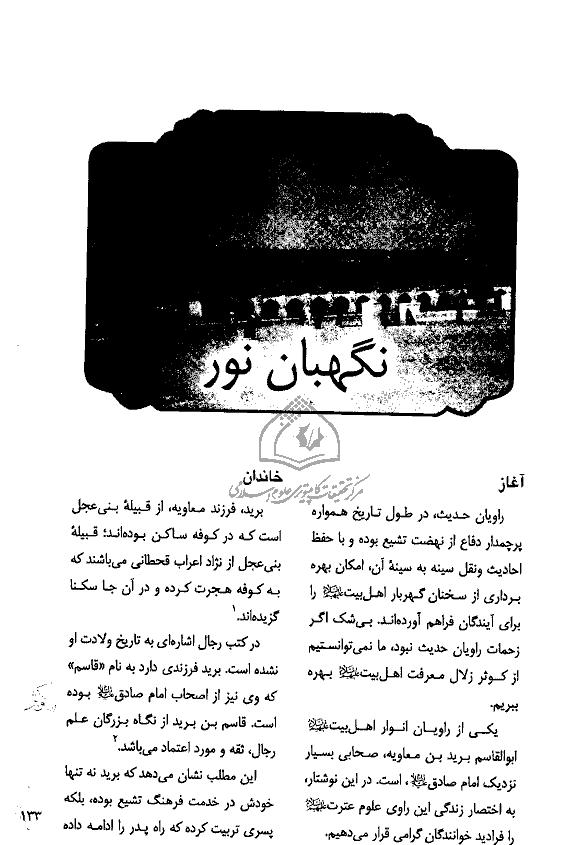 نگهبان نور
مرکز تحقیقات کامپیوتری علوم اسلامی
آغاز
راویان حدیث، در طول تاریخ همواره
پرچمدار دفاع از نهضت تشیع بوده و با حفظ
احادیث ونقل سینه به سینهٔ آن، امکان بهره
برداری از سخنان گهربار اهل‌بیت را
برای آیندگان فراهم آورده‌اند. بی‌شک اگر
زحمات راویان حدیث نبود، ما نمی‌توانستیم
از کوثر زلال معرفت اهل‌بیت بهره
ببریم.
یکی از راویان انوار اهل‌بیت
ابوالقاسم برید بن معاویه، صحابی بسیار
نزدیک امام صادق، است. در این نوشتار،
به اختصار زندگی این راوی علوم عترت
را فرادید خوانندگان گرامی قرار می‌دهیم.
خاندان
برید، فرزند معاویه، از قبیلهٔ بنی‌عجل
است که در کوفه ساکن بوده‌اند؛ قبیلهٔ
بنی‌عجل از نژاد اعراب قحطانی می‌باشند که
به کوفه هجرت کرده و در آن جا سکنا
گزیده‌اند.۱
در کتب رجال اشاره‌ای به تاریخ ولادت او
نشده است. برید فرزندی دارد به نام «قاسم»
که وی نیز از اصحاب امام صادق بوده
است. قاسم بن برید از نگاه بزرگان علم
رجال، ثقه و مورد اعتماد می‌باشد.۲
این مطلب نشان می‌دهد که برید نه تنها
خودش در خدمت فرهنگ تشیع بوده، بلکه
پسری تربیت کرده که راه پدر را ادامه داده
۱۳۳